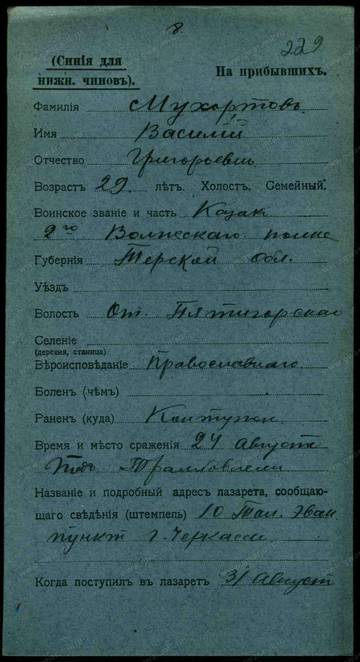 8.
229
(Синія для
нижн. чиновъ).
На прибывшихъ.
Фамилія Мухортовъ
Имя Василій
Отчество Григорьевъ
Возрастъ 29 лѣтъ. Холостъ. Семейный.
Воинское званіе и часть Казак
2го Волжскаго полка
Губернія Терской обл.
Уѣздъ
Волость Ст. Пятигорская
Селеніе
(деревня, станица)
Вѣроисповѣданіе Православнаго
Боленъ (чѣмъ)
Раненъ (куда) Контужен
Время и мѣсто сраженія 27 Август
подъ
Названіе и подробный адресъ лазарета, сообщаю-
щаго свѣдѣнія (штемпель) 10 Тыл. Эвак
пункт г. Черкассы
Когда поступилъ въ лазаретъ 31 Август